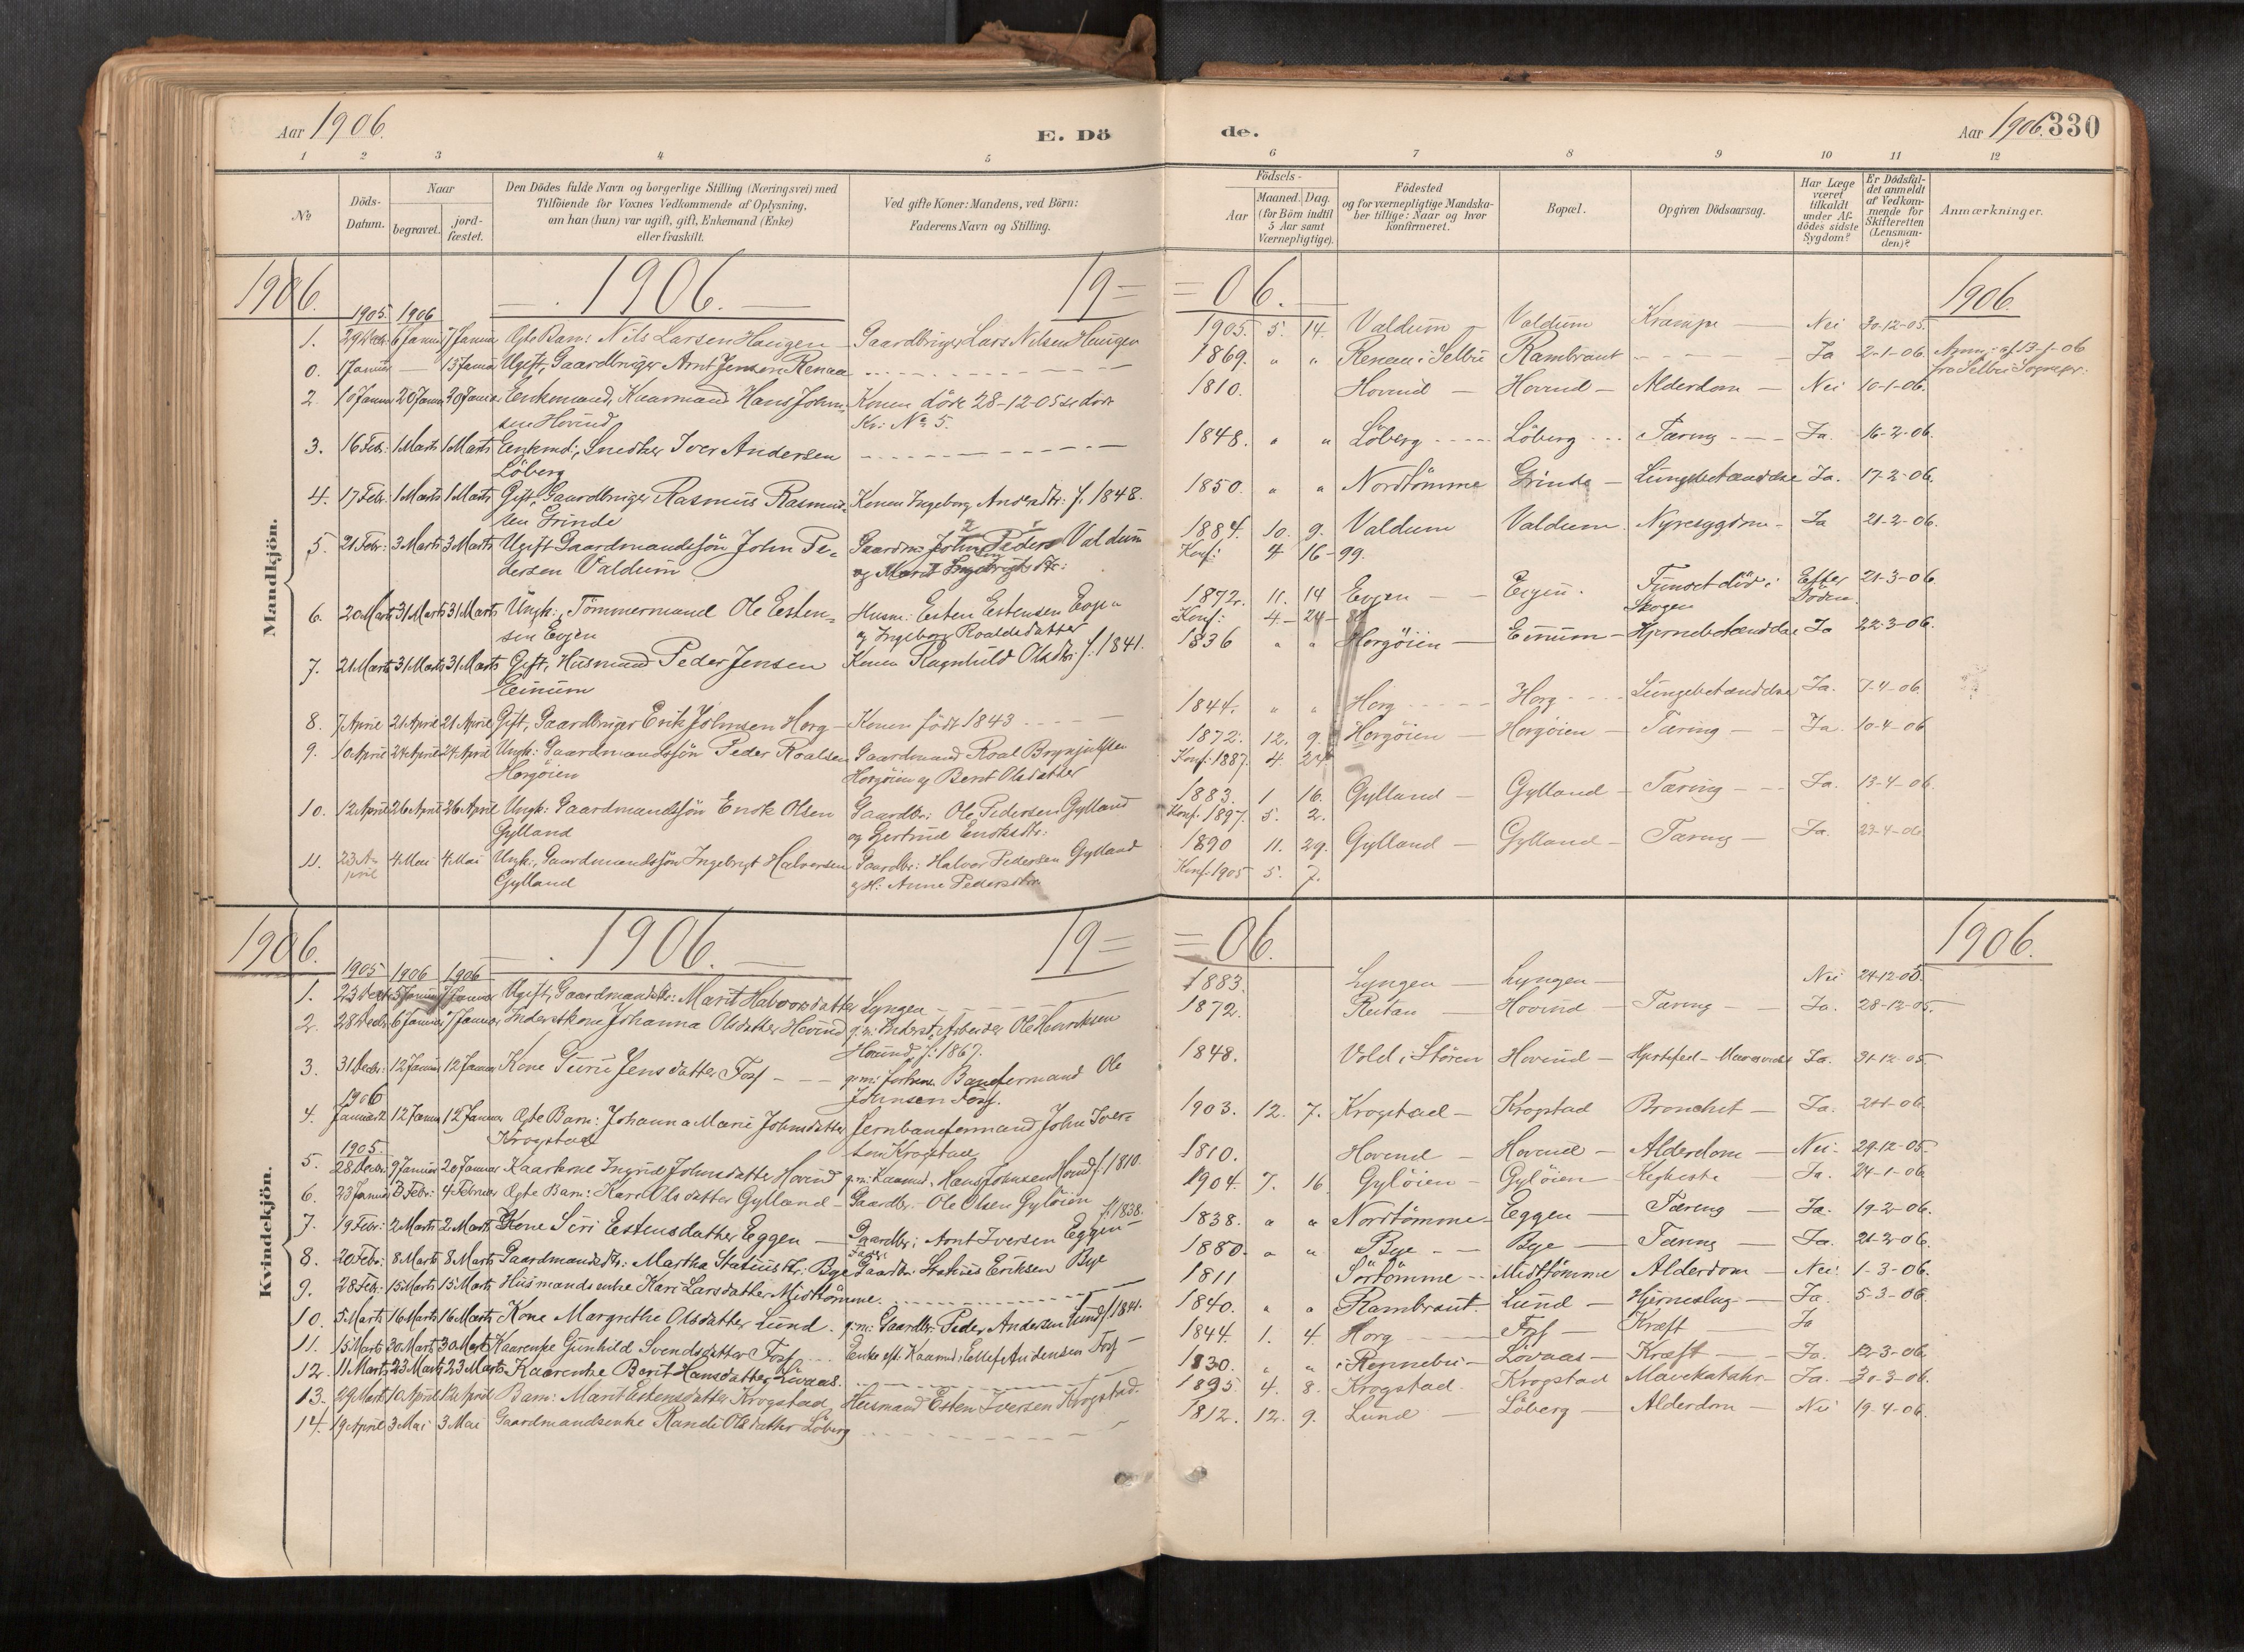 Aar 1906.
E. Dö
de.
Aar 1906. 330
1 2 3 4 5 6 7 8 9 10 11 12
№
Döds-
Datum.
Naar
begravet.
jord-
fæstet.
Den Dödes fulde Navn og borgerlige Stilling (Næringsvei) med
Tilföiende for Voxnes Vedkommende af Oplysning,
om han (hun) var ugift, gift, Enkemand (Enke)
eller fraskilt.
Ved gifte Koner: Mandens, ved Börn:
Faderens Navn og Stilling.
Födsels-
Aar
Maaned. Dag.
(for Börn indtil
5 Aar samt
Værnepligtige).
Födested
og for værnepligtige Mandska-
ber tillige: Naar og hvor
konfirmeret.
Bopæl.
Opgiven Dödsaarsag.
Har Læge
været
tilkaldt
under Af-
dödes sidste
Sygdom?
Er Dödsfal-
det anmeldt
af Vedkom-
mende for
Skifteretten
(Lensman-
den)?
Anmærkninger.
Mandkjön.
1906. 1906. 19= =06. 1906.
1905. 1906
1. 29 Decbr 6 Januar 7 Januar Ægte Barn: Nils Larsen Haugen Gaardbruger Lars Nilsen Haugen 1905. 5. 14. Valdum Valdum Krampe Nei 30-12-05.
0. 1 Januar — 13 Januar Ugift, Gaardbruger Arnt Jensen Renaa 1869. " " Renaa i Selbu Rambraut Ja 2-1-06. Anm: af 13-1-06
fra Selbu Sognepr:
2. 10 Januar 20 Januar 20 Januar Enkemand, Kaarmand Hans John- Konen döde 28-12-05 se döde 1810. Hovind Hovind Alderdom Nei 10-1-06.
sen Hovind Kv: № 5.
3. 16 Febr: 1 Marts 1 Marts Enkemd:, Snedker Iver Andersen 1848. " " Löberg Löberg Tæring Ja. 16-2-06.
Löberg
4. 17 Febr. 1 Marts 1 Marts Gift, Gaardbruger Rasmus Rasmus- Konen Ingeborg Andersdtr: f. 1848. 1850. " " Nordtömme Grinde Lungebetændelse Ja. 17-2-06.
sen Grinde
5. 21 Febr: 3 Marts 3 Marts Ugift Gaardmandssön John Pe- Gaardm: John Peders Valdum 1884. 10. 9. Valdum Valdum. Nyresygdom Ja 21-2-06.
dersen Valdum og Marit Ingebrigtsdtr: Konf: 4 16-99.
6. 20 Marts 31 Marts 31 Marts Ungk:, Tömmermand Ole Esten- Husm: Esten Estensen Evjen 1872. 11. 14 Evjen Evjen. Fundet död i Efter 21-3-06.
sen Evjen og Ingeborg Roaldsdatter Konf: 4-24- Skogen Döden.
7. 21 Marts 31 Marts 31 Marts Gift, Husmand Peder Jensen Konen Ragnhild Olsdtr: f. 1841. 1836 " " Horgöien Einum Hjernebetændelse Ja 22-3-06.
Einum
8. 7 April 21 April 21 April Gift, Gaardbruger Erik Johnsen Horg Konen födt 1843 1844. " " Horg Horg Lungebetændelse Ja. 7-4-06.
9. 10 April 24 April 24 April Ungk: Gaardmandssön Peder Roalsen Gaardmand Roal Brynjulfsen 1872. 12. 9. Horgöien Horgöien Tæring Ja. 10-4-06
Horgöien Horgöien og Berit Olsdatter Konf: 1887. 4. 24.
10. 12 April 26 April 26 April Ungk: Gaardmandssön Enok Olsen Gaardbr: Ole Pedersen Gylland 1883. 1. 16. Gylland Gylland Tæring Ja. 13-4-06.
Gylland og Gjertrud Enoksdtr: Konf. 1897. 5. 2.
11. 23 A- 4 Mai 4 Mai Ungk:, Gaardmandssön Ingebrigt Halvorsen Gaardbr: Halvor Pedersen Gylland 1890 11. 29. Gylland Gylland Tæring Ja. 23-4-06
pril Gylland og H: Anne Pedersdtr. Konf: 1905 5. 7.
Kvindekjön.
1906. 1906. 19= =06. 1906.
1905 1906 1906
1. 23 Decbr 5 Januar 7 Januar Ugift, Gaardmandsdtr: Marit Halvorsdatter Lyngen 1883. Lyngen Lyngen Nei 24-12-05.
2. 28 Decbr 6 Januar 7 Januar Inderstkone Johanna Olsdatter Hovind g. m: Inderst, Arbeider Ole Henriksen 1872. Reitan Hovind Tæring Ja. 28-12-05.
Hovind f: 1867.
3. 31 Decbr: 12 Januar 12 Januar Kone Guru Jensdatter Fos g. m: forhenv. Baneformand Ole 1848. Vold i Stören Hovind Hjertefeil Ja. 31-12-05
Johnsen Fos.
1906
4. Januar 2 12 Januar 12 Januar Ægte Barn: Johanna Marie Johnsdatter Jernbaneformand John Iver- 1903. 12. 7. Krogstad Krogstad Bronchit Ja. 2-1-06.
Krogstad sen Krogstad
1905.
5. 28 Decbr: 9 Januar 20 Januar Kaarkone Ingrid Johnsdatter Hovind g. m: Kaarmd: Hans Johnsen Hovind f. 1810. 1810. Hovind Hovind Alderdom Nei 29-12-05.
6. 23 Januar 3 Febr: 4 Februar Ægte Barn: Kari Olsdatter Gylland Gaardbr. Ole Olsen Gylöien 1904. 7. 16 Gylöien Gylöien Kighoste Ja. 24-1-06.
7. 19 Febr: 2 Marts 2 Marts Kone Siri Estensdatter Eggen Gaardbr: Arnt Iversen Eggen f. 1838. 1838. " " Nordtömme Eggen Tæring Ja. 19-2-06.
8. 20 Febr: 8 Marts 8 Marts Gaardmandsdtr: Martha Statiusdtr: Bye Fader: Gaardbr: Statius Eriksen Bye 1880. " " Bye Bye Tæring Ja. 21-2-06.
9. 28 Febr. 15 Marts 15 Marts Husmandsenke Kari Larsdatter Midttömme. 1811 Sörtömme Midttömme Alderdom Nei 1-3-06.
10. 5 Marts 16 Marts 16 Marts Kone Margrethe Olsdatter Lund. g. m: Gaardbr. Peder Andersen Lund f. 1841. 1840. " " Rambraut. Lund Hjerneslag Ja. 5-3-06
11. 15 Marts 30 Marts 30 Marts Kaarenke Gunhild Svendsdatter Fos Enke eft: Kaarmd: Ellef Andersen Fos 1844. 1. 4. Horg Fos Kræft Ja
12. 11 Marts 23 Marts 23 Marts Kaarenke Berit Hansdatter Lövaas. 1830. " " i Rennebu Lövaas Kræft Ja. 12-3-06.
13. 29 Marts 10 April 12 April Barn: Marit Estensdatter Krogstad Husmand Esten Iversen Krogstad. 1895 4. 8. Krogstad. Krogstad Mavekatahr Ja. 30-3-06.
14. 19 April 3 Mai 3 Mai Gaardmandsenke Randi Olsdatter Löberg 1812. 12. 9. Lund Löberg Alderdom Nei 19-4-06.